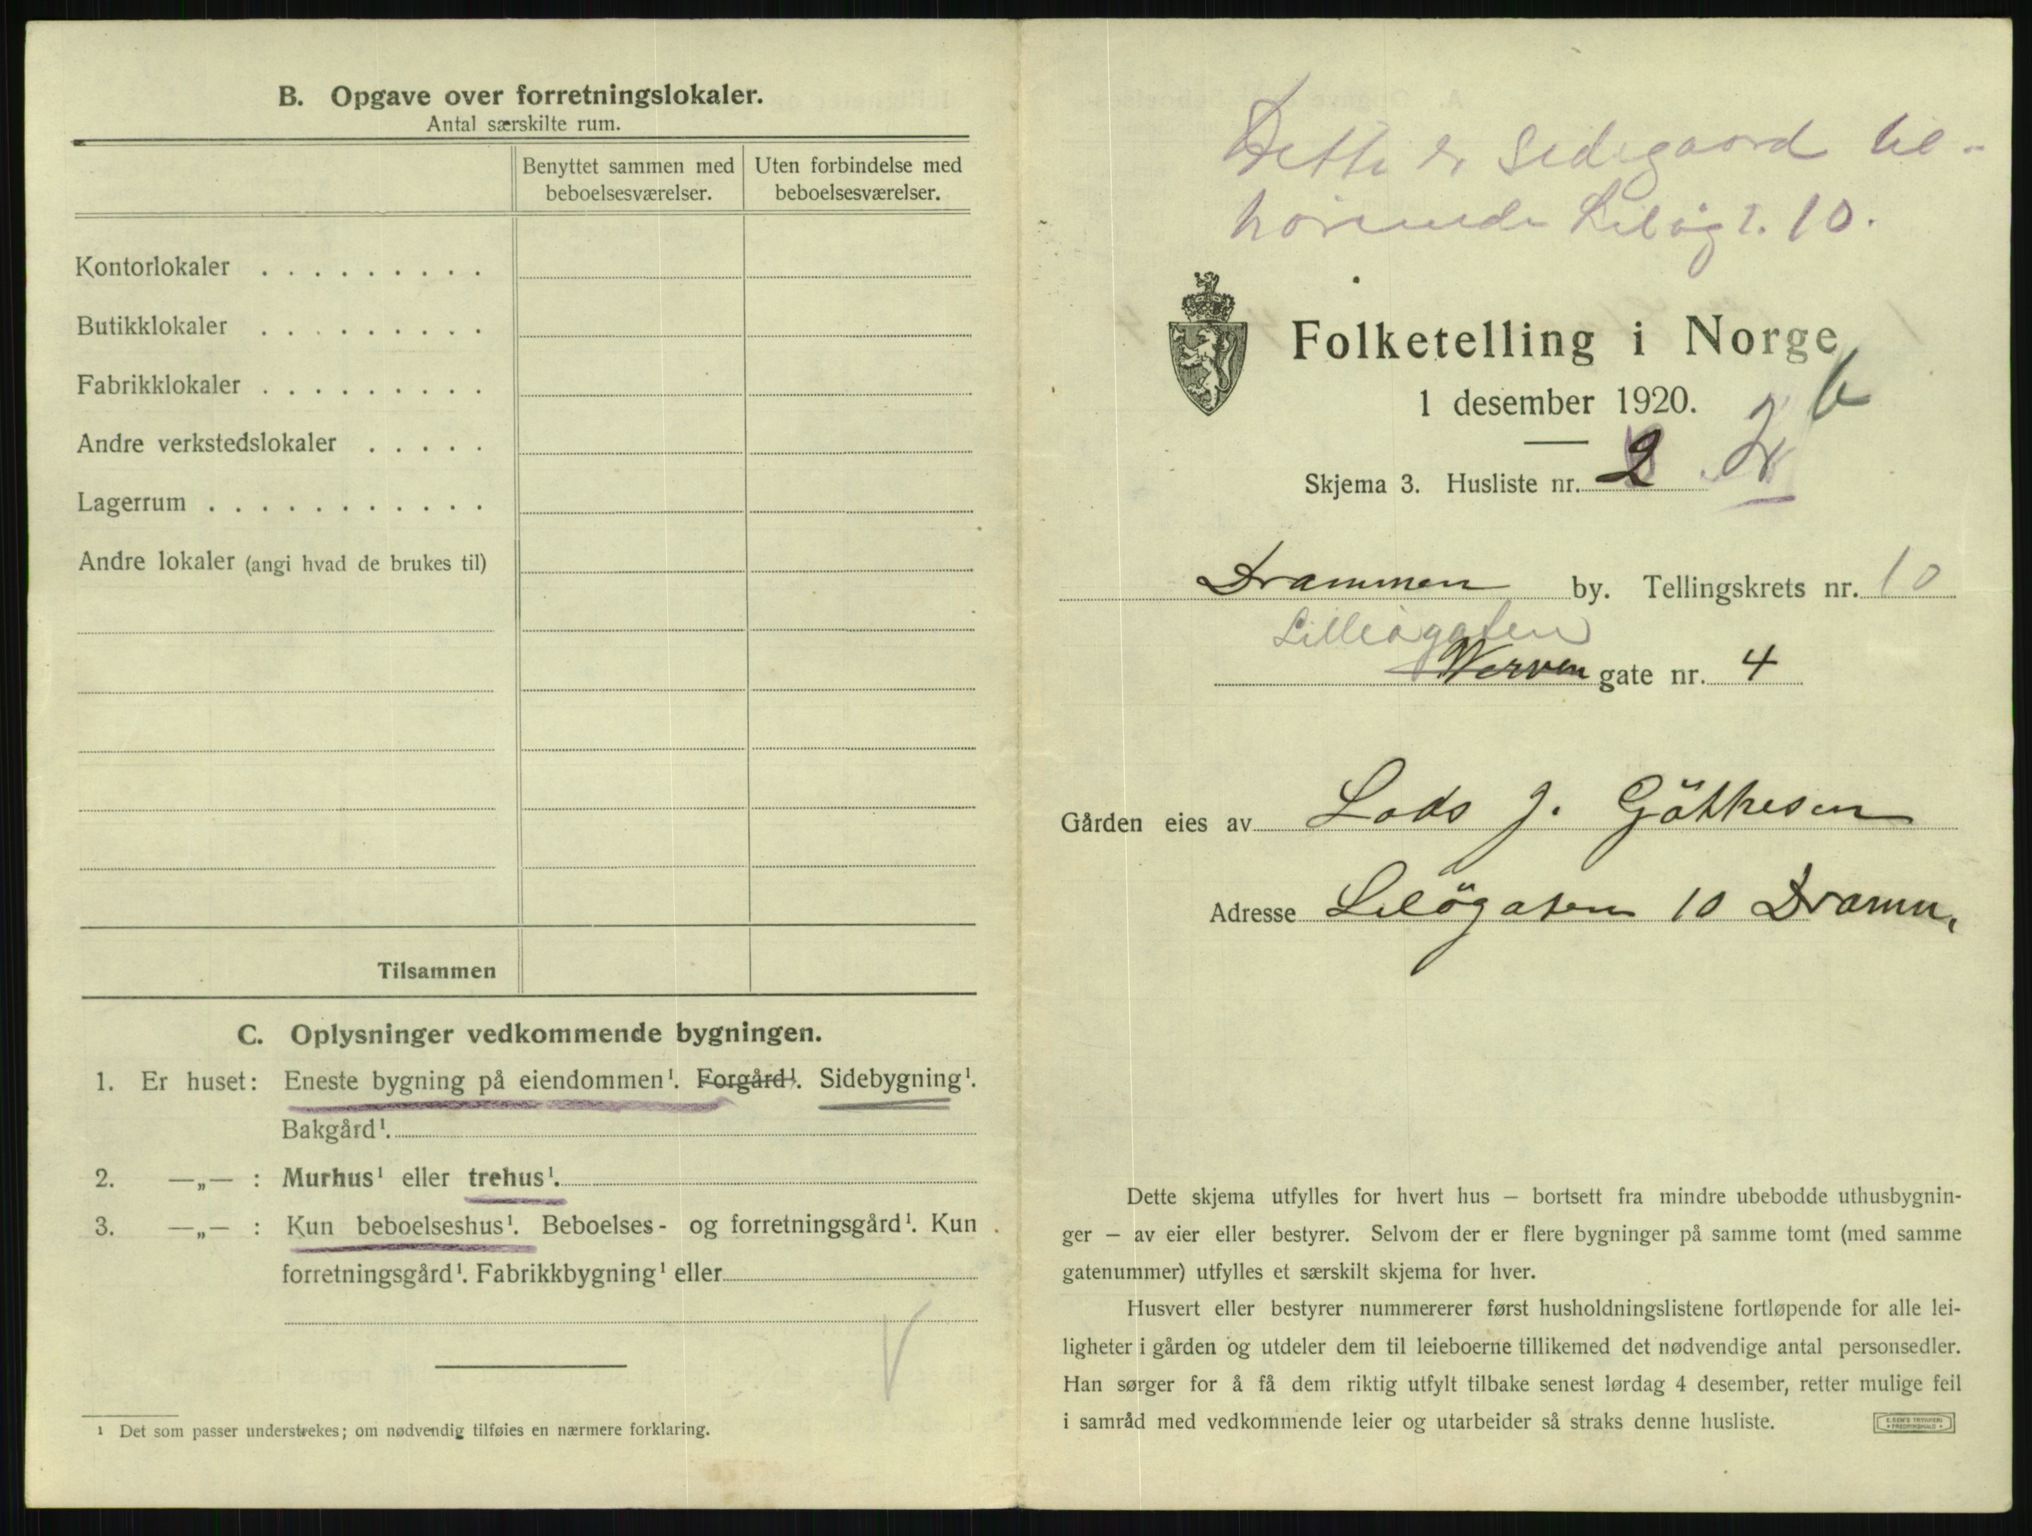 B. Opgave over forretningslokaler.
Antal særskilte rum.
Benyttet sammen med beboelsesværelser.
Uten forbindelse med beboelsesværelser.
Kontorlokaler . . . . . . . . .
Butikklokaler . . . . . . . . .
Fabrikklokaler . . . . . . . . .
Andre verkstedslokaler . . . . .
Lagerrum . . . . . . . . . . .
Andre lokaler (angi hvad de brukes til)
Tilsammen
C. Oplysninger vedkommende bygningen.
1. Er huset: Eneste bygning på eiendommen¹. Forgård¹. Sidebygning¹.
Bakgård¹.
2. —„— : Murhus¹ eller trehus¹.
3. —„— : Kun beboelseshus¹. Beboelses- og forretningsgård¹. Kun
forretningsgård¹. Fabrikkbygning¹ eller
¹ Det som passer understrekes; om nødvendig tilføies en nærmere forklaring.
Dette er Sidegaard til-
hørende Liløgt. 10.
Folketelling i Norge
1 desember 1920.
b
Skjema 3. Husliste nr. 2
Drammen by. Tellingskrets nr. 10
Lilleøgaten
Werven gate nr. 4
Gården eies av Lods J. Göthesen
Adresse Lilögaten 10 Dramn.
Dette skjema utfylles for hvert hus – bortsett fra mindre ubebodde uthusbygnin-
ger – av eier eller bestyrer. Selvom der er flere bygninger på samme tomt (med samme
gatenummer) utfylles et særskilt skjema for hver.
Husvert eller bestyrer nummererer først husholdningslistene fortløpende for alle lei-
ligheter i gården og utdeler dem til leieboerne tillikemed det nødvendige antal personsedler.
Han sørger for å få dem riktig utfylt tilbake senest lørdag 4 desember, retter mulige feil
i samråd med vedkommende leier og utarbeider så straks denne husliste.